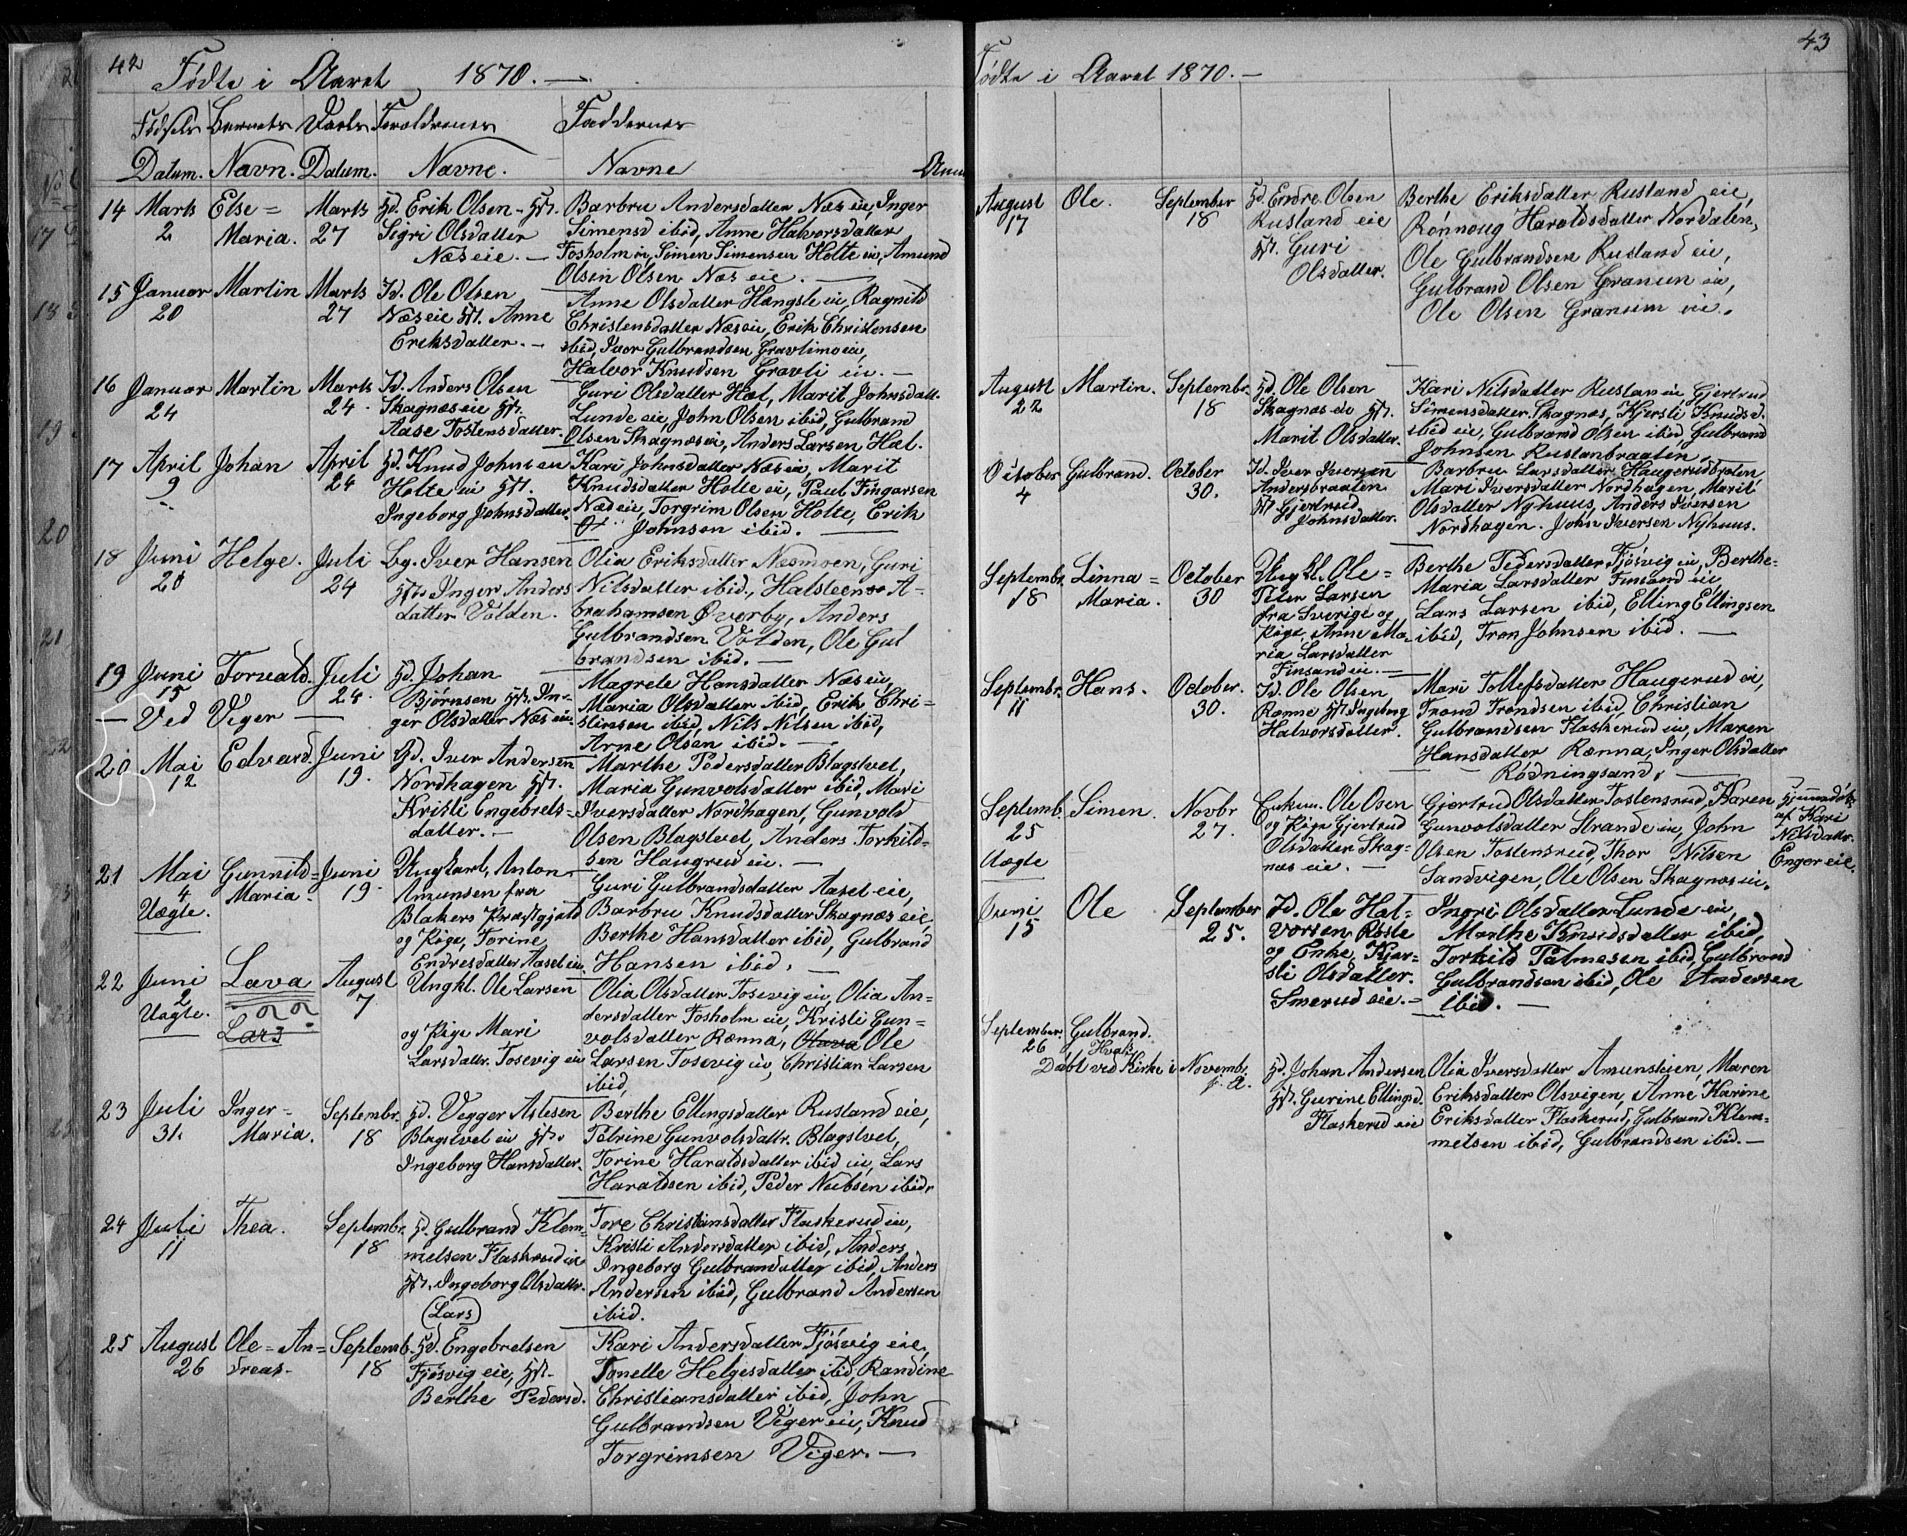 42
Fødte i Aaret 1870. —
Fødsels Barnets Daabs Foreldrenes Faddernes
Datum. Navn. Datum. Navne. Navne
14 Marts Else = Marts Gd. Erik Olsen - Barbru Andersdatter Næs eie, Inger
2 Maria. 27 Sigri Olsdatter Simensd ibid, Anne Halvorsdatter
Næs eie. — Fosholm eie, Simen Simensen Holte eie, Amund
Olsen Olsen Næs eie. —
15 Januar Martin Marts Id. Ole Olsen Anne Olsdatter Hængsle eie, Ragnild
20 27 Næs eie Anne Christensdatter Næs eie, Erik Christensen
Eriksdatter. — ibid, Iver Gulbrandsen Gravlimo eie,
Halvor Knudsen Gravli eie. —
16 Januar Martin Marts Id. Anders Olsen Guri Olsdatter Hæl, Marit Johnsdatt.
24 24. Skagnæs eie Lunde eie, John Olsen ibid, Gulbrand
Aase Tostensdatter. Olsen Skagnæs eie, Anders Larsen Hæl.
17 April Johan April Gd. Knud Johnsen Kari Johnsdatter Næs eie, Marit
9 24 Holte eie Knudsdatter Holte eie, Paul Fingarsen
Ingeborg Johnsdatter. Næs eie, Torgrim Olsen Holte, Erik
Johnsen ibid. —
18 Juni Helge. Juli Bg. Iver Hansen Olia Eriksdatter Næsmoen, Guri
20 24 Inger Anders Nilsdatter ibid, Halsteen A-
datter Volden. brahamsen Øverby, Anders
Gulbrandsen Volden, Ole Gul
brandsen ibid. —
19 Juni Torvald. Juli Gd. Johan Magrete Hansdatter Næs eie,
15 24. Bjørnsen In- Maria Olsdatter ibid, Erik Chri-
— Ved Viger — ger Olsdatter Næs eie stensen ibid, Nils Nilsen ibid,
Arne Olsen ibid. —
20 Mai Edvard. Juni Gd. Iver Andersen Marthe Pedersdatter Blagstvet,
12 19. Nordhagen Maria Gunvolsdatter ibid, Mari
Kristi Engebrets= Iversdatter Nordhagen, Gunvold
datter. — Olsen Blagstvet, Anders Torkild-
sen Haugrud eie. —
21 Mai Gunnild= Juni Ungkarl, Anton Guri Gulbrandsdatter Aaset eie,
4 Maria. 19. Amunsen fra Barbru Knudsdatter Skagnæs eie,
Uægte. Blakers Præstgjæld Berthe Hansdatter ibid, Gulbrand
og Pige, Torine Hansen ibid. —
Endresdatter Aaset eie
22 Juni Lava August Ungkl. Ole Larsen Olia Olsdatter Tosevig eie, Olia An=
2 7 dersdatter Fosholm eie, Kristi Gun=
Uægte. Lars og Pige Mari volsdatter Rænna, Olava Ole
Larsdattr. Tosevig eie Larsen Tosevig eie, Christian Larsen
ibid,
23 Juli Inger= Septembr. Gd. Vegger Astesen Berthe Ellingsdatter Rusland eie,
31. Maria. 18 Blagstvet eie Petrine Gunvolsdattr. Blagstvet,
Ingeborg Hansdatter. Torine Haraldsdatter ibid eie, Lars
Haraldsen ibid, Peder Nubsen ibid,
24 Juli Thea. Septembr. Gd. Gulbrand Klem- Tore Christiansdatter Flaskerud eie,
11 18 metsen Flaskerud eie Kristi Andersdatter ibid, Anders
Ingeborg Olsdattr. Ingeborg Gulbransdatter ibid, Anders
(Lars) Andersen ibid, Gulbrand Andersen
ibid.
25 August Ole = An= Septemb. Gd. Engebretsen Kari Andersdatter Fjøsvig eie,
26 dreas. 18 Fjøsvig eie, Tonette Helgesdatter ibid, Randine
Berthe Pedersd. Christiansdatter ibid, John
Gulbrandsen Viger eie, Knud
Torgrimsen Viger. —
43
Fødte i Aaret 1870. —
August Ole. September Gd. Endre Olsen Berthe Eriksdatter Rusland eie,
17 18 Rusland eie Rønnoug Haraldsdatter Nordalen,
Guri Ole Gulbrandsen Rusland eie,
Olsdatter. Gulbrand Olsen Granum eie,
Ole Olsen Granum eie.
August Martin. Septembr. Gd. Ole Olsen Kari Nilsdatter Ruslan eie, Gjertrud
22 18 Skagnæs eie Simensdatter Skagnæs, Kjersti Knudsd.
Marit Olsdatter. ibid eie, Gulbrand Olsen ibid, Gulbrand
Johnsen Ruslanbraaten.
October Gulbrand. October Id. Iver Iversen Barbru Larsdatter Haugerudbraten
4 30. Andersbraaten Mari Iversdatter Nordhagen, Marit
Gjertrud Olsdatter Nyhuus, Anders Iversen
Johnsdatter. Nordhagen. John Iversen Nyhuus.
Septembr. Linna = October Ungkl. Ole= Berthe Pedersdatter Fjøsvig eie, Berthe-
18 Maria. 30 Peter Larsen Maria Larsdatter Finsand eie,
fra Sverige og Lars Larsen ibid, Elling Ellingsen
Pige, Anne Ma- ibid, Tron Johnsen ibid. —
ria Larsdatter
Finsand eie. —
Septembr. Hans. October. Id. Ole Olsen Mari Tollefsdatter Haugerud eie,
11 30. Rænne Ingeborg Trond Trondsen ibid, Christian
Halvorsdatter. Gulbrandsen Flaskerud eie, Maren
Hansdatter Rænna, Inger Olsdatter
Rødningsand, —
Septemb. Simen. Novbr Enkem. Ole Osen Gjertrud Olsdatter Tostensrud, Karen Hjemmedøbt
25 27. og Pige Gjertrud Gunvolsdatter Strande eie, John af Kari
Uægte Olsdatter Skag= Olsen Tostensrud, Thor Nilsen Nilsdattr.
næs eie. — Sandvigen, Ole Olsen Skagnæs eie. Enger eie.
Juni Ole September Id. Ole Hal= Ingri Olsdatter Lunde eie,
15 25. vorsen Røste Marthe Knudsdatter ibid,
og Enke, Kjer= Torkild Palmesen ibid, Gulbrand
sti Olsdatter. Gulbrandsen ibid, Ole Andersen
Smerud eie. — ibid. —
September Gulbrand.
26 Hvals
Døbt ved Kirke i Novemb. Gd. Johan Andersen Olia Iversdatter Amunslien, Maren
Gurine Ellingsd. Eriksdatter Olsvigen, Anne Karine
Flaskerud eie Eriksdatter Flaskerud, Gulbrand Klem-
metsen ibid, Gulbrandsen ibid. —